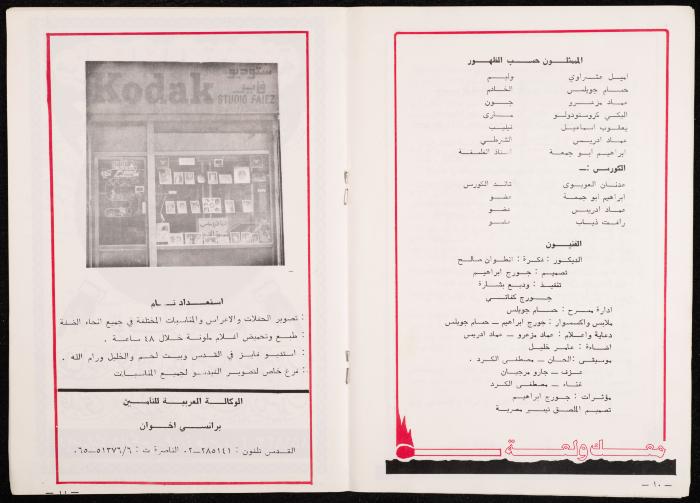 الممثلون حسب الظهور
اميل عشراوي وليم
حسام جويلس الخادم
عماد مزعرو جون
اليكي كروستودولو ماري
يعقوب اسماعيل فيليب
عماد ادريس الشرطي
ابراهيم ابو جمعة استاذ الفلسفة
الكورس :ـ
عدنان قائد الكورس
ابراهيم ابو جمعة عضو
عماد ادريس عضو
رأفت ذياب عضو
الفنيون
الديكور : فكرة : انطوان صالح
تصميم : جورج ابراهيم
تنفيذ : وديع بشارة
جورج كفاتي
ادارة مسرح : حسام جويلس
ملابس واكسسوار : جورج ابراهيم ــ حسام جويلس
دعاية واعلام : عماد مزعرو ــ عماد ادريس
اضاءة : عامر خليل
موسيقى : الحان ــ مصطفى الكرد .
عزف ــ جارو مرجيان
غناء ــ مصطفى الكرد
مؤثرات : جورج ابراهيم
تصميم الملصق
ولعة
ــ ١٠ ــ
ستوديو
فايز
Kodak
STUDIO FAIEZ
استعداد تام
: تصوير الحفلات والاعراس والمناسبات المختلفة في جميع انحاء الضفة
: طبع وتحميض افلام ملونة خلال ٤٨ ساعة .
: استديو فايز في القدس وبيت لحم والخليل ورام الله .
: فرع خاص لتصوير الفيديو لجميع المناسبات
الوكالة العربية للتامين
برانسي اخوان
القدس تلفون : ٢٨٥١٤١ــ٠٢ الناصرة ت : ٥١٣٧٦/٦ــ٠٦٥
ــ ١١ ــ